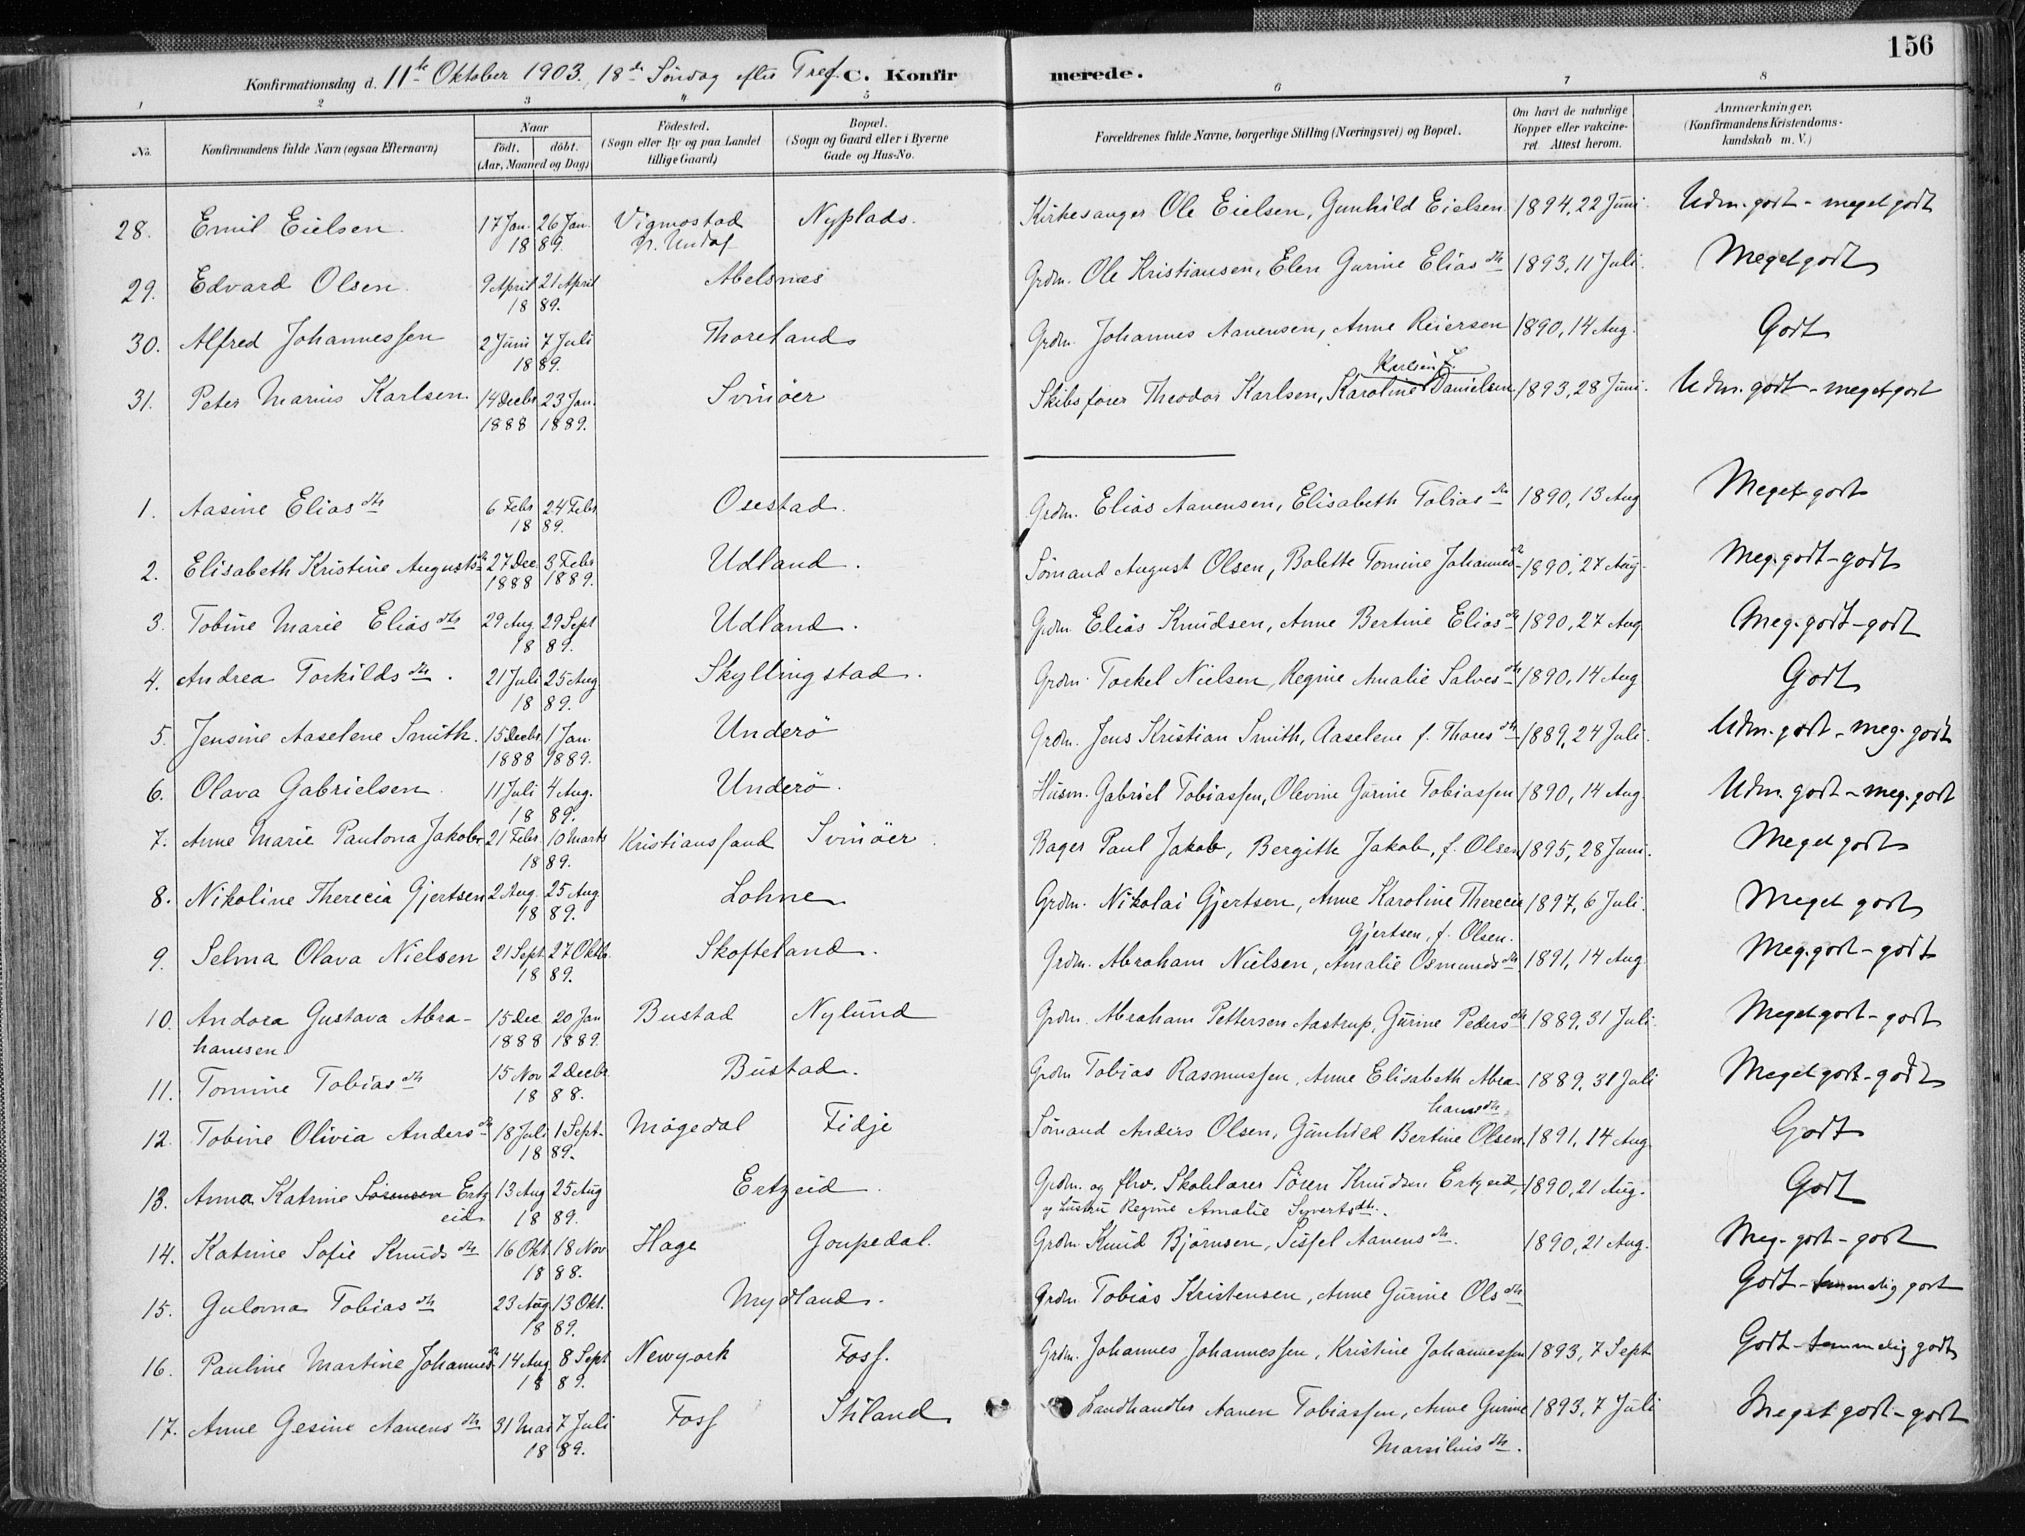 156
Konfirmationsdag d. 11te Oktober 1903, 18de Søndag efter Tref. C. Konfirmerede.
1 2 3 4 5 6 7 8
No. Konfirmandens fulde Navn (ogsaa Efternavn) Naar födt. döbt. (Aar, Maaned og Dag) Födested. (Sogn eller By og paa Landet tillige Gaard) Bopæl. (Sogn og Gaard eller i Byerne Gade og Hus-No. Forældrenes fulde Navne, borgerlige Stilling (Næringsvei) og Bopæl. Om havt de naturlige Kopper eller vakcineret. Attest herom. Anmærkninger. (Konfirmandens Kristendomskundskab m. V.)
28. Emil Eielsen. 17 Jan. 26 Jan. Vigmostad Nyplads. Kirkesanger Ole Eielsen, Gunhild Eielsen 1894, 22 Juni. Udm. godt - meget godt
1889. N. Undal
29. Edvard Olsen. 9 April 21 April Abelsnæs Grdm. Ole Kristiansen, Elen Gurine Elias dtr 1893, 11 Juli. Meget godt
1889.
30. Alfred Johannessen 2 Juni 7 Juli Thoreland Grdm. Johannes Aanensen, Anne Reiersen 1890, 14 Aug. Godt
1889.
Karlsen f.
31. Peter Marius Karlsen. 14 Decbr 23 Jan. Svinöer Skibsfører Theodor Karlsen, Karoline Danielsen 1893, 28 Juni. Udm. godt - meget godt
1888 1889.
1. Aasine Elias dtr 6 Febr 24 Febr Osestad. Grdm. Elias Aanensen, Elisabeth Tobias dtr 1890, 13 Aug Meget godt
1889.
2. Elisabeth Kristine Augusts dtr 27 Dec 3 Febr Udland. Sømand August Olsen, Bolette Tomine Johannes dtr 1890, 27 Aug. Meg. godt - godt
1888 1889.
3. Tobine Marie Elias dtr 29 Aug 29 Sept Udland. Grdm Elias Knudsen, Anne Bertine Elias dtr 1890, 27 Aug Meg. godt - godt
1889.
4. Andrea Torkilds dtr. 21 Juli 25 Aug Skyllingstad. Grdm. Torkel Nielsen, Regine Amalie Salves dtr 1890, 14 Aug Godt
1889.
5. Jensine Aaselene Smith. 15 Decbr 1 Jan. Underö Grdm. Jens Kristian Smith, Aaselene f. Thores dtr 1889, 24 Juli. Udm. godt - meg. godt
1888 1889.
6. Olava Gabrielsen. 11 Juli 4 Aug. Underö. Husm. Gabriel Tobiassen, Olevine Gurine Tobiassen 1890, 14 Aug. Udm. godt - meg. godt
1889.
7. Anne Marie Paulona Jakob 21 Febr 10 Marts Kristianssand Svinöer. Bager Paul Jakob, Bergith Jakob, f. Olsen 1895, 28 Juni. Meget godt
1889.
8. Nikoline Therecia Gjertsen 2 Aug. 25 Aug Lohne Grdm. Nikolai Gjertsen, Anne Karoline Therecia 1897, 6 Juli. Meget godt
1889. Gjertsen, f. Olsen.
9. Selma Olava Nielsen 21 Sept 27 Oktb. Skofteland. Grdm. Abraham Nielsen, Amalie Osmunds dtr 1891, 14 Aug. Meg. godt - godt
1889.
10. Andora Gustava Abra- 15 Dec 20 Jan Bustad Nylund Grdm. Abraham Pettersen Aastrup, Gurine Peders dtr 1889, 31 Juli. Meget godt - godt
hamsen. 1888 1889.
11. Tomine Tobias dtr 15 Nov 2 Decbr Bustad. Grdm Tobias Rasmussen, Anne Elisabeth Abra- 1889, 31 Juli Meget godt - godt
1888. hams dtr
12. Tobine Olivia Anders dtr 18 Juli 1 Sept. Møgedal Fidje Sømand Anders Olsen, Gunhild Bertine Olsen. 1891, 14 Aug. Godt
1889.
13. Anna Katrine Sørensen Ertz 13 Aug 25 Aug Ertzeid. Grdm. og fhv. Skolelærer Sören Knudsen Ertzeid, 1890, 21 Aug. Godt
eid 1889. og Hustru Regine Amalie Syverts dtr.
14. Katrine Sofie Knuds dtr 16 Okt. 18 Nov Hage Goupedal. Grdm Knud Bjørnsen, Sissel Aanens dtr. 1890, 21 Aug. Meg. godt - godt
1888.
15. Gulovna Tobias dtr 23 Aug. 13 Okt. Mydland. Grdm Tobias Kristensen, Anne Gurine Ols dtr Godt - temmelig godt
1889.
16. Pauline Martine Johannes dtr 14 Aug 8 Sept Newyork Foss. Grdm. Johannes Johannessen, Kristine Johannessen 1893, 7 Sept Godt - temmelig godt
1889.
17. Anne Gesine Aanens dtr 31 Mai 7 Juli Foss Stiland Landhandler Aanen Tobiassen, Anne Gurine 1893, 7 Juli Meget godt - godt
1889. Marsilius dtr.